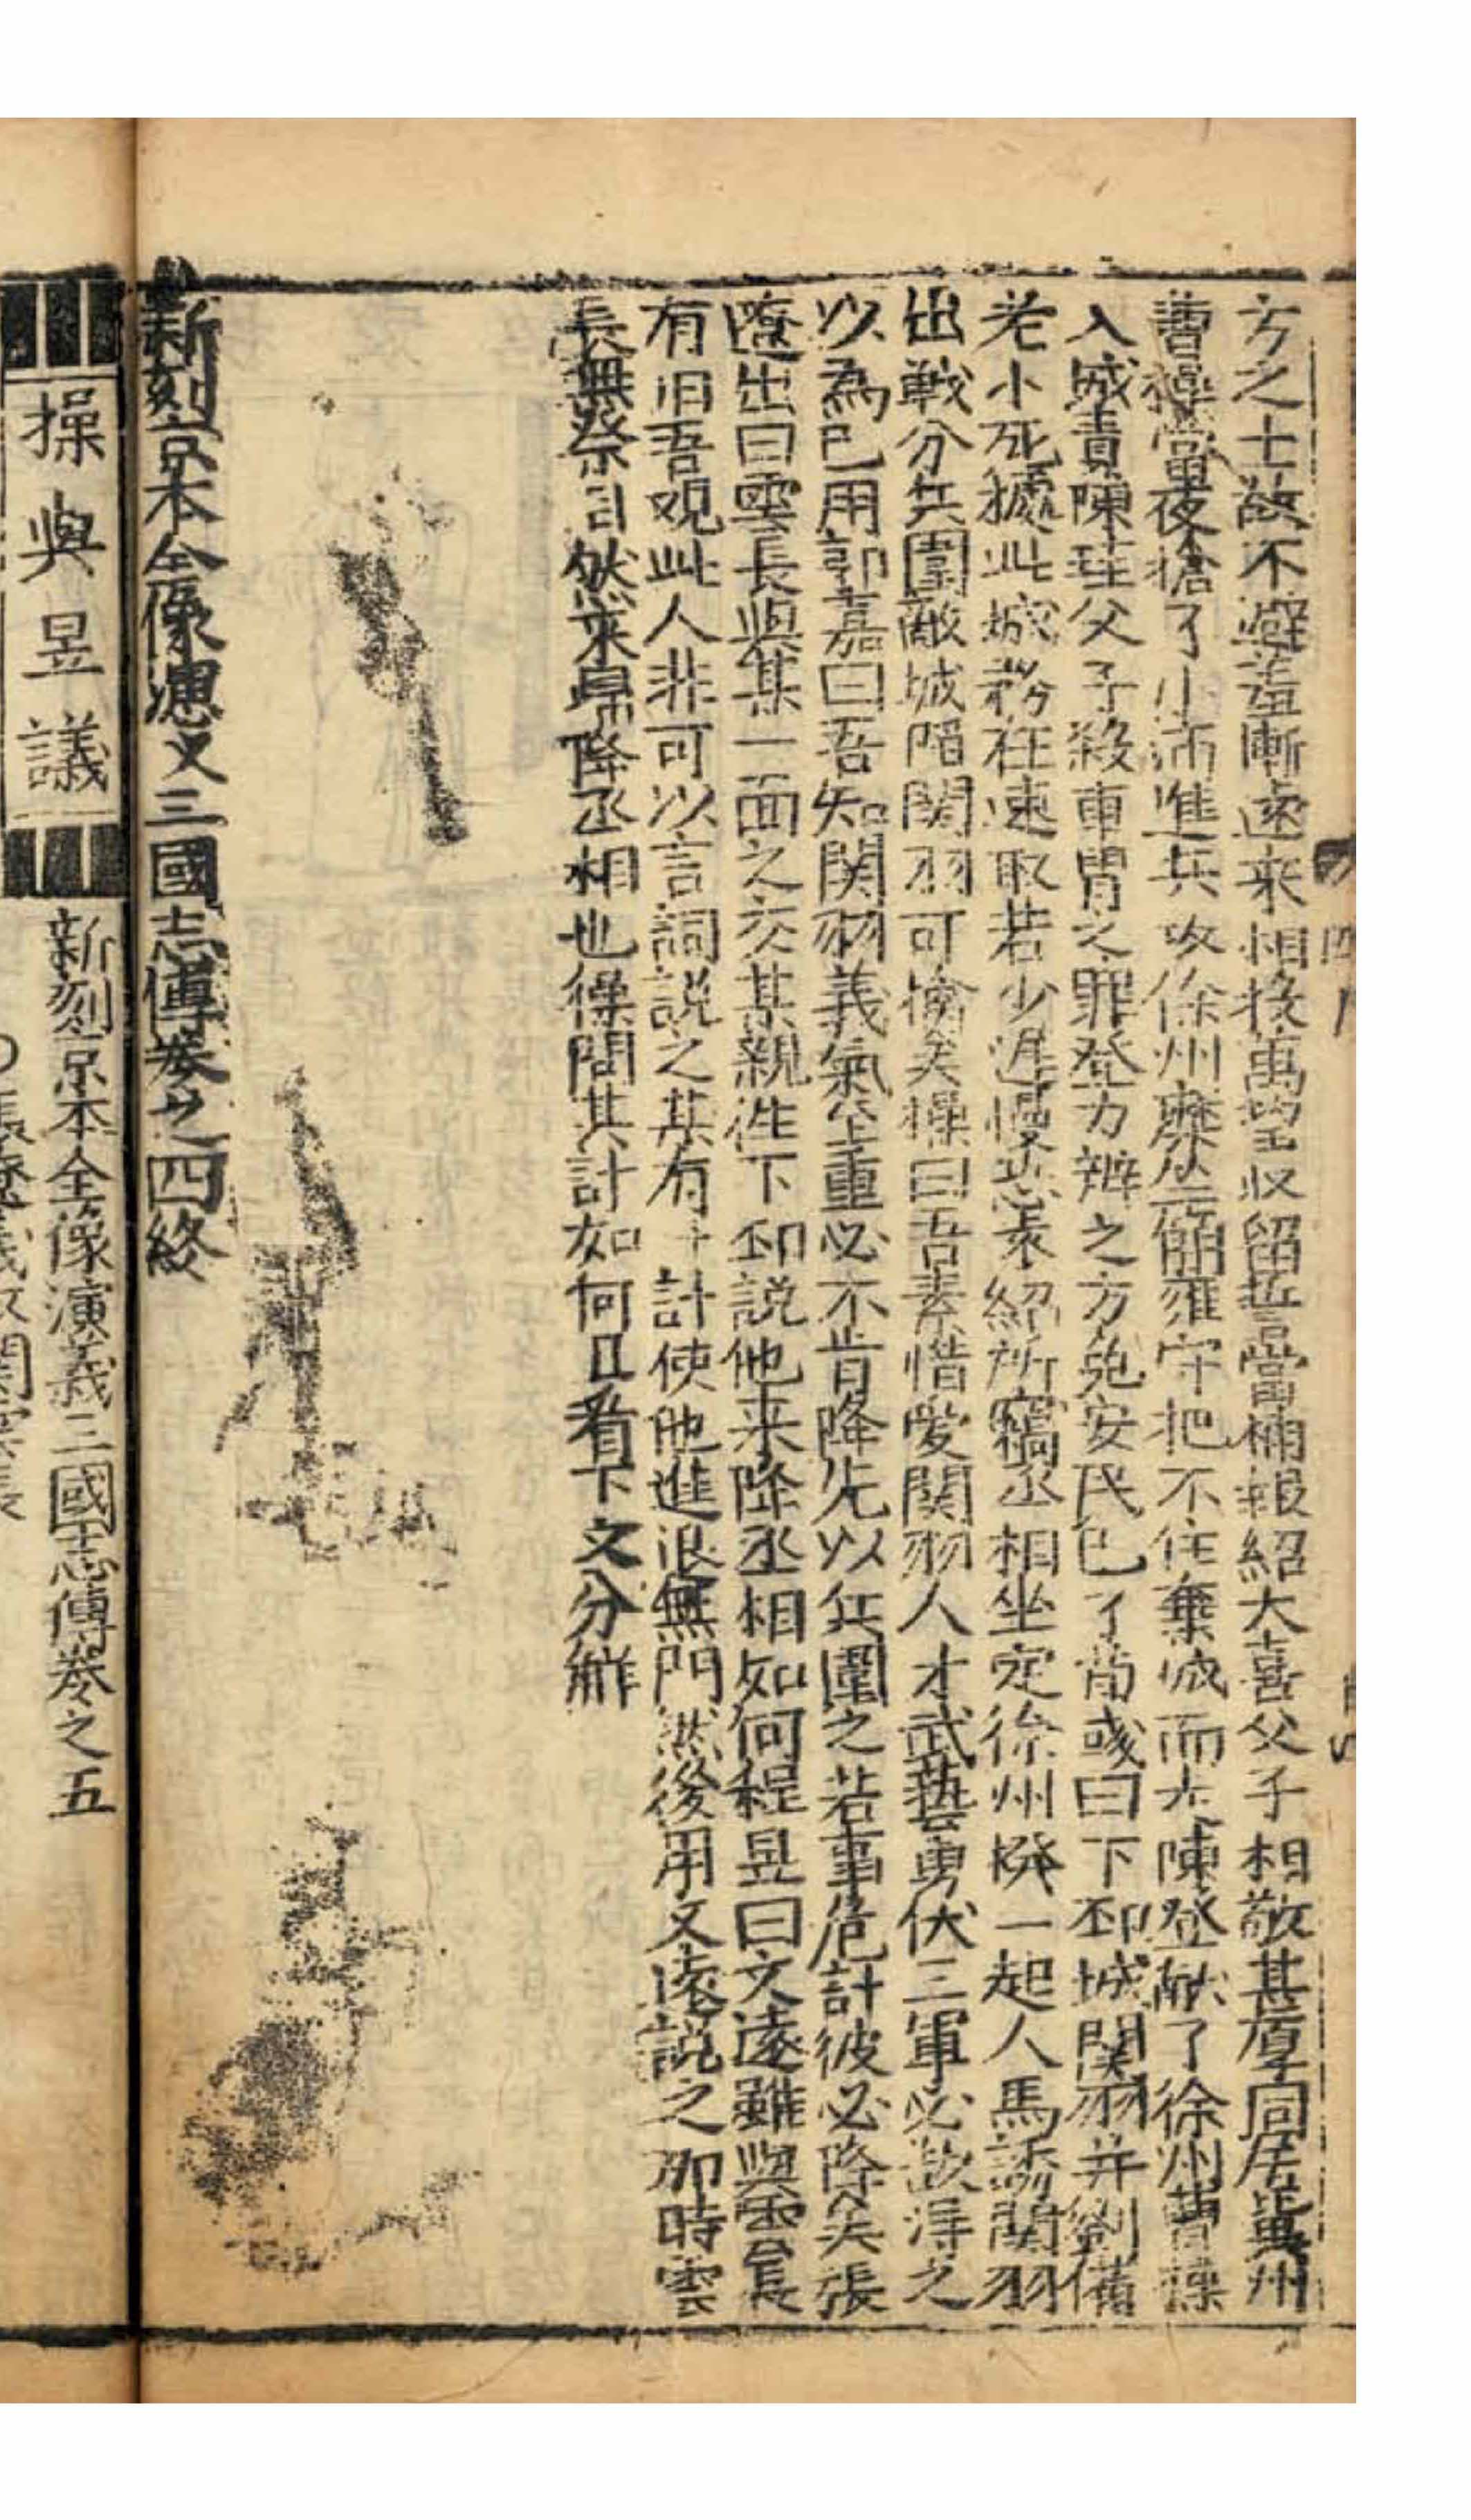 方之士故不避羞慚遠来相投萬望收留誓當補報紹大喜父子相敬甚厚同居冀州
曹操當夜搶了小沛進兵攻徐州糜竺簡雍守把不住棄城而去陳登献了徐州曹操
入城責陳珪父子殺車冑之罪登力辨之方免安民已了荀彧曰下邳城関羽并劉備
老小死據此城務在速取若少遲慢恐袁紹所竊丞相坐定徐州撥一起人馬誘関羽
出戦分兵圍敵城陷関羽可擒矣操曰吾素惜愛関羽人才武藝勇伏三軍必欲得之
以為已用郭嘉曰吾知関羽義氣至重必不肯降先以兵圍之若事危計彼必降矣張
遼出曰雲長與某一面之交某親往下邳説他来降丞相如何程昱曰文遠雖與雲長
有旧吾观此人非可以言詞説之某有一計使他進退無門然後用文遠説之那時雲
長無祭言然來皐降丞相也操問其計如何且看下文分觧
新刻京本全像演义三國志傳卷之四終
操與昱議
新刻京本全像演義三國志傳卷之五